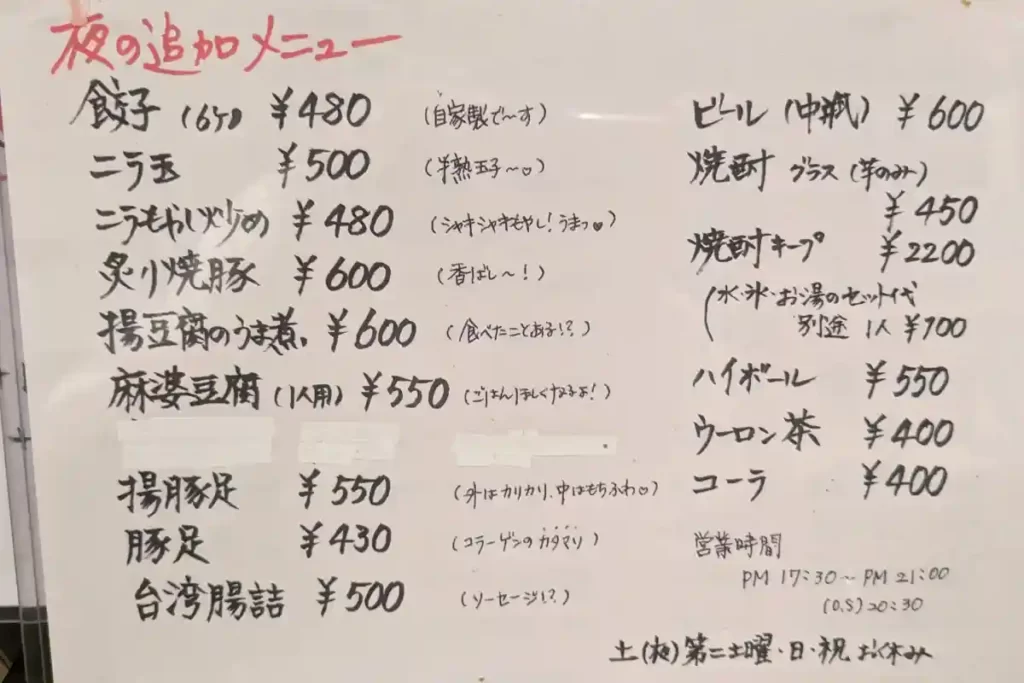 夜の追加メニュー
餃子 (6ケ) ¥480 (自家製で〜す)
ニラ玉 ¥500 (半熟玉子〜♡)
ニラもやし炒め ¥480 (シャキシャキもやし!うまっ♡)
炙り焼豚 ¥600 (香ばし〜!)
揚豆腐のうま煮 ¥600 (食べたことある!?)
麻婆豆腐 (1人用) ¥550 (ごはんほしくなるよ!)
揚豚足 ¥550 (外はカリカリ、中はもちふわ♡)
豚足 ¥430 (コラーゲンのカタマリ)
台湾腸詰 ¥500 (ソーセージ!?)
ビール (中瓶) ¥600
焼酎 グラス (芋のみ)
¥450
焼酎キープ ¥2200
(水・氷・お湯のセット代
別途 1人 ¥700
ハイボール ¥550
ウーロン茶 ¥400
コーラ ¥400
営業時間
PM 17:30〜PM 21:00
(O.S) 20:30
土(夜)第二土曜・日・祝 お休み